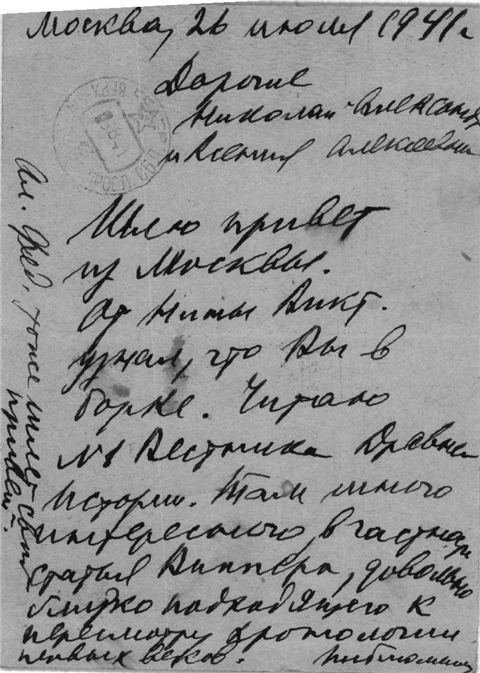 Москва, 26 июля 1941 г
Дорогие
Николай Александр
и Ксения Алексеевна
Шлю привет
из Москвы.
От Нины Викт.
узнал, что Вы в
борке. Читаю
№1 Вестника Древней
Истории. Там много
интересного, в частности
статья Виппера, довольно
близко подходящего к
пересмотру хронологии
первых веков.
Ал. Фед. тоже шлет свой
привет.
ЯРОСЛ. ОБЛ.